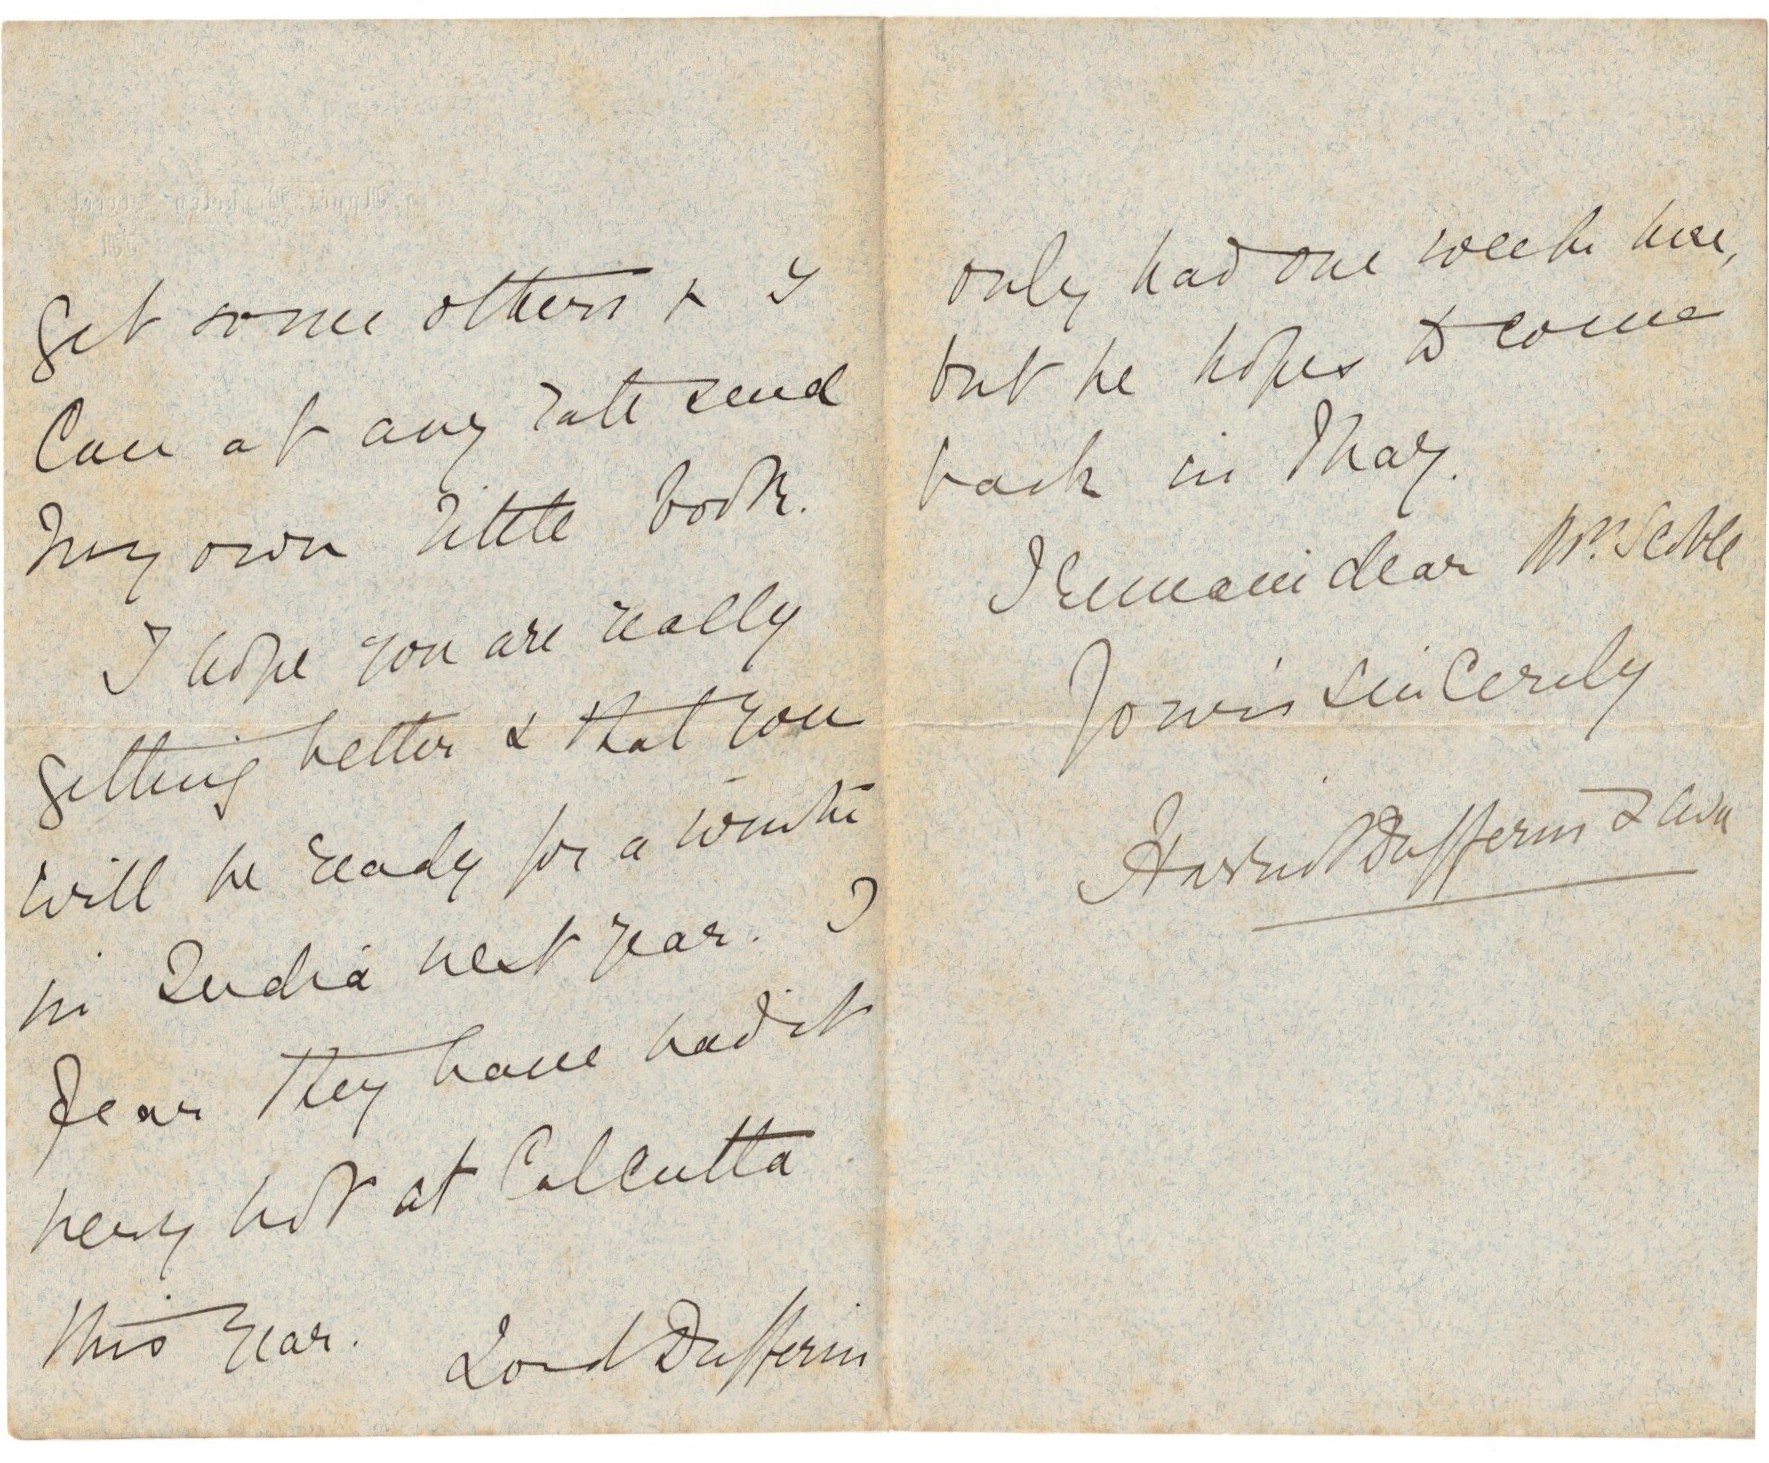 get some others & I
can at any rate send
my own little book.
I hope you are really
getting better & that you
will be ready for a winter
in India next year. I
fear they have had it
very hot at Calcutta
this year. Lord Dufferin
only had one week here,
but he hopes to come
back in May.
I remain dear Mr. Scoble
Yours sincerely
Harriot Dufferin & Ava